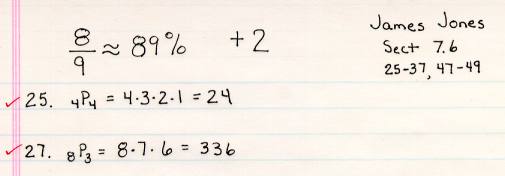 8/9 ≈ 89% +2
James Jones
Sect 7.6
25-37, 47-49
✓25. ₄P₄ = 4·3·2·1 = 24
✓27. ₈P₃ = 8·7·6 = 336